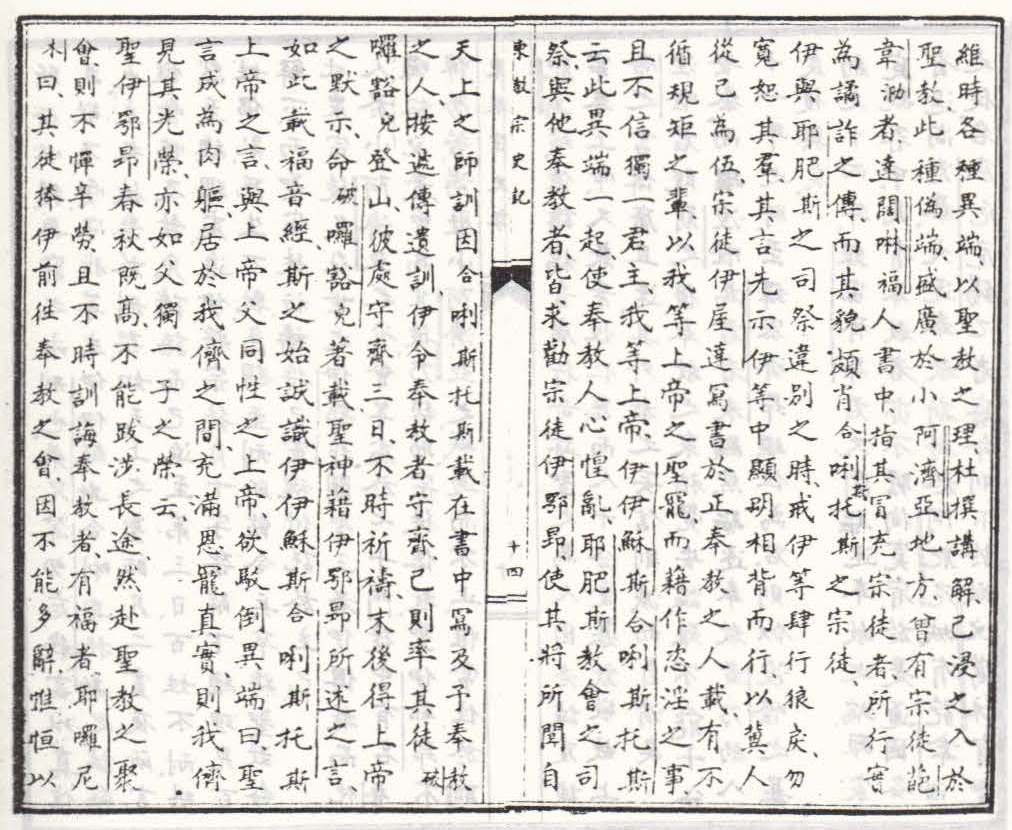 維時各種異端以聖敎之理杜撰講解已浸之入於
聖敎此種僞端盛廣於小阿濟亞地方曾有宗徒葩
韋泐者達闊啉福人書中指其冒充宗徒者所行實
為譎詐之傳而其貌頗肖合唎斯托斯之宗徒
伊與耶肥斯之司祭違別之時戒伊等肆行狼戾勿
寬恕其羣其言先示伊等中顯明相背而行以冀人
從己為伍宗徒伊屋達寫書於正奉敎之人載有不
循現矩之輩以我等上帝之聖寵而藉作恣淫之事
且不信獨一君主我等上帝伊伊穌斯合唎斯托斯
云此異端一起使奉敎人心惶亂耶肥斯敎會之司
祭與他奉敎者皆求勸宗徒伊鄂昂使其將所聞自
東敎宗史記
十四
天上之師訓因合唎斯托斯載在書中寫及予奉敎
之人按遞傳遺訓伊令奉敎者守齋己則率其徒破
囉豁兌登山彼處守齊三日不時祈禱末後得上帝
之默示命破囉豁兌著載聖神藉伊鄂昂所述之言
如此載福音經斯之始誠識伊伊穌斯合唎斯托斯
上帝之言與上帝父同性之上帝欲駁倒異端曰聖
言成為肉軀居於我儕之間充滿恩寵真實則我儕
見其光榮亦如父獨一子之榮云
聖伊鄂昂春秋旣高不能跋涉長途然赴聖敎之聚
會則不憚辛勞且不時訓誨奉敎者有福者耶囉尼
木曰其徒捧伊前往奉敎之會因不能多辭惟恒以